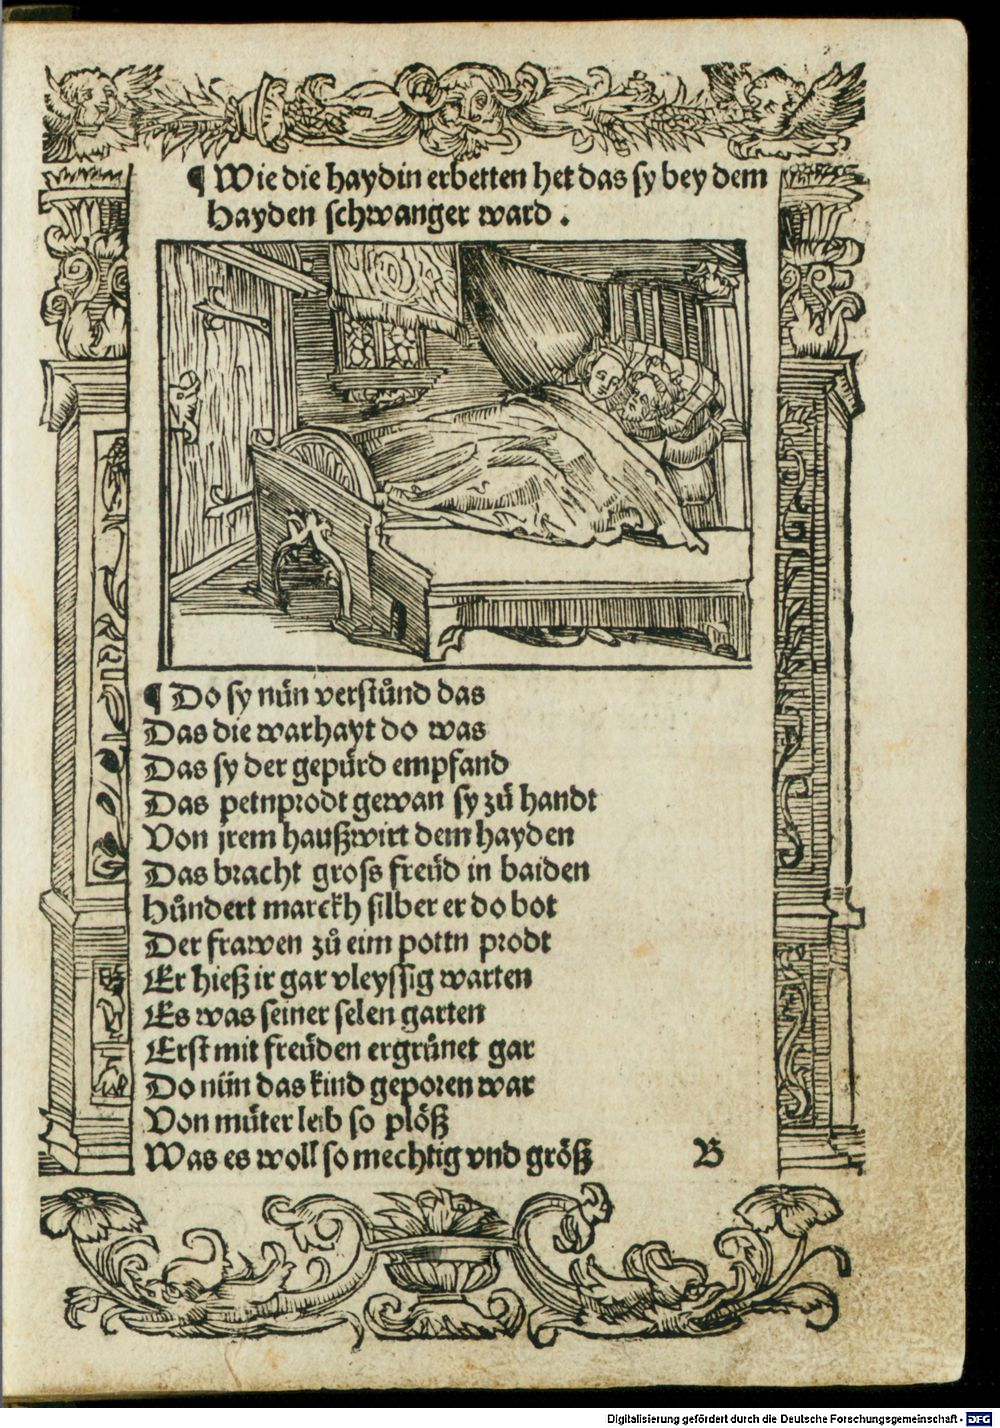 ¶ Wie die haydin erbetten het das sy bey dem
Hayden schwanger ward .
¶ Do sy nün verstůnd das
Das die warhayt do was
Das sy der gepůrd empfand
Das petnprodt gewan sy zů handt
Von jrem haußwirt dem hayden
Das bracht gross freůd in baiden
Hůndert marckh silber er do bot
Der frawen zů eim pottn prodt
Er hieß ir gar vleyssig warten
Es was seiner selen garten
Erst mit freůden ergrůnet gar
Do nün das kind geporen war
Von můter leib so plöß
Was es woll so mechtig vnd größ
B
Digitalisierung gefördert durch die Deutsche Forschungsgemeinschaft - DFG